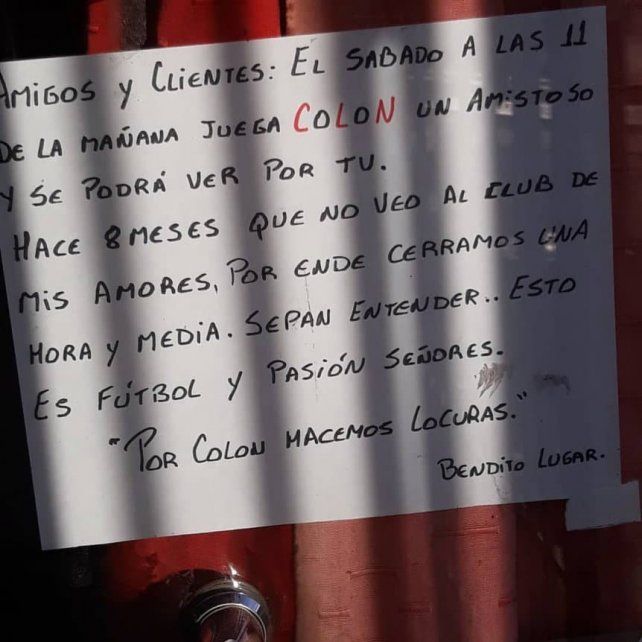 AMIGOS Y CLIENTES: EL SABADO A LAS 11
DE LA MAÑANA JUEGA COLON UN AMISTOSO
Y SE PODRÁ VER POR TU.
HACE 8 MESES QUE NO VEO AL CLUB DE
MIS AMORES, POR ENDE CERRAMOS UNA
HORA Y MEDIA. SEPAN ENTENDER.. ESTO
ES FÚTBOL Y PASIÓN SEÑORES.
"POR COLON HACEMOS LOCURAS."
BENDITO LUGAR.